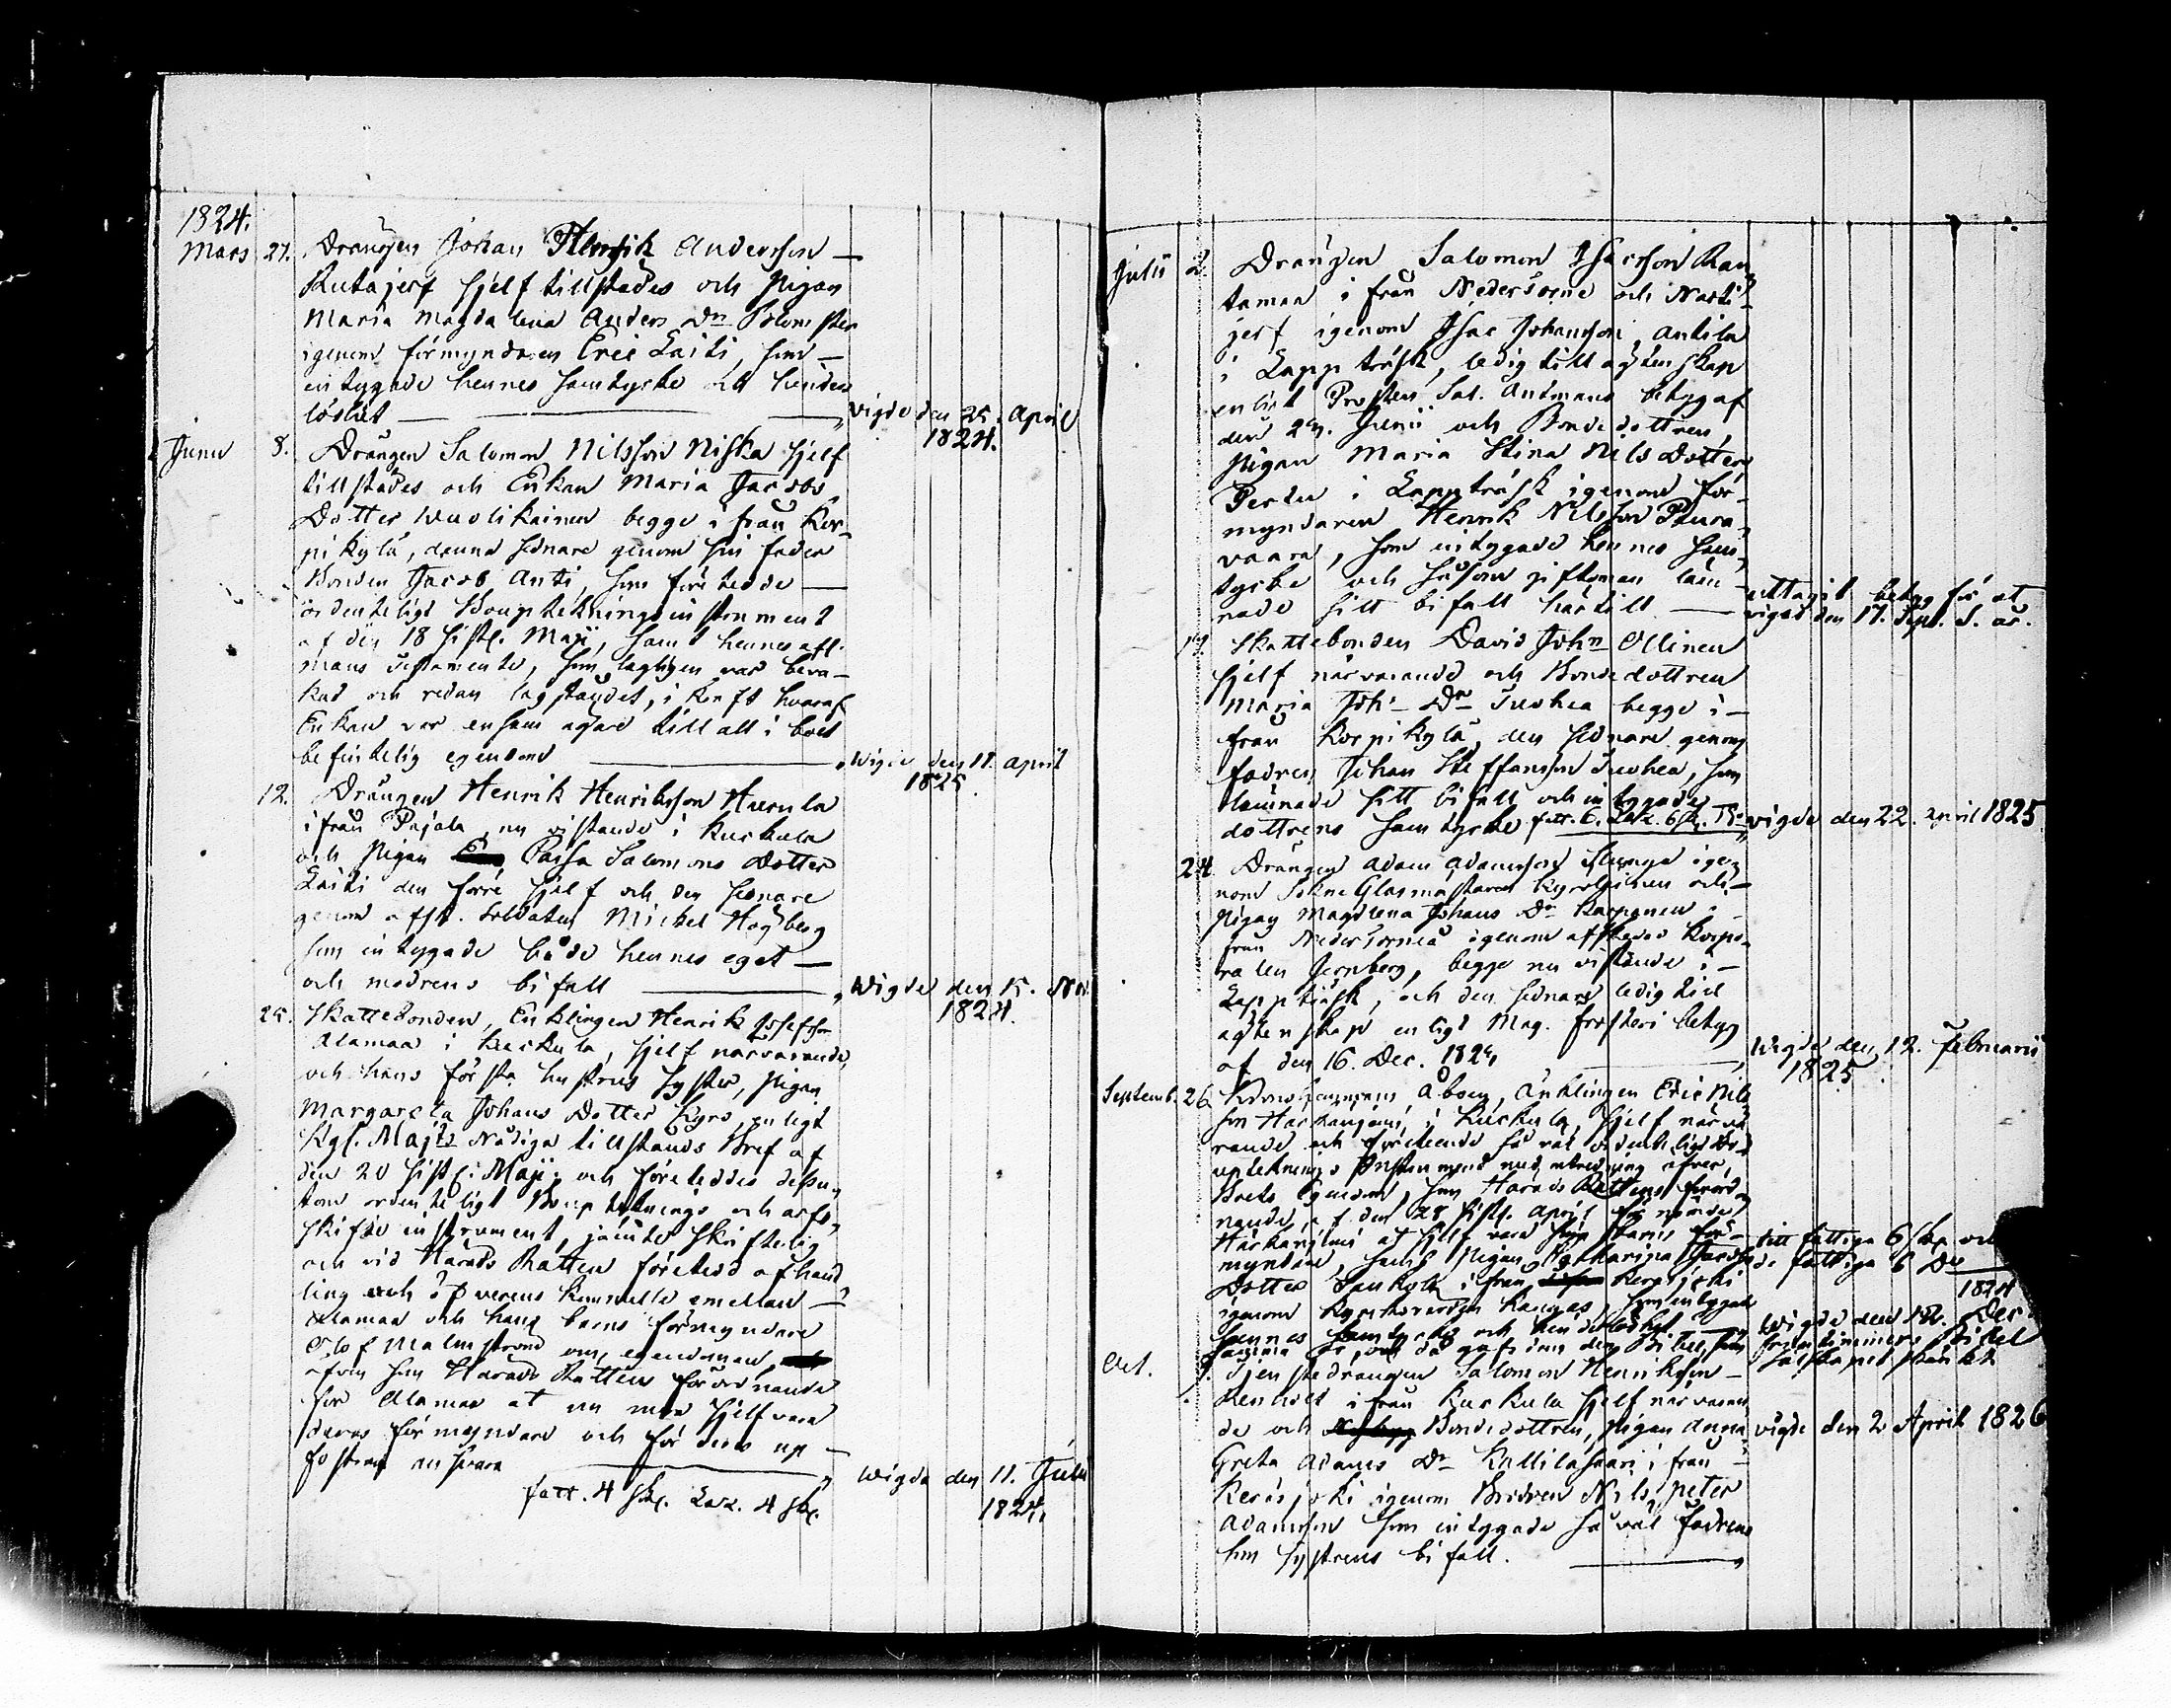 1824.
Mars 27. Drängen Johan Henrik Andersson —
Rutajerf sjelf tillstädes och Pigan
Maria Magdalena Anders Dr Blomster
igenom förmyndaren Eric Laiti, som —
intygade hennes samtycke och hinders
löshet — vigde den 25. April
1824.
Junii 8. Drängen Salomon Nilsson Niska sjelf
tillstädes och Enkan Maria Jacobs
Dotter Wuolikainen begge ifrån Kor-
pikylä, denna sednare genom sin fader
Bonden Jacob Anti, som företedde —
ordenteligt Bouptekningsinstrument
af den 18 sistl. Maji, samt hennes afl.
mans Testamente, som lagligen var beva-
kad och redan lagståndet, i kraft hvaraf
Enkan var ensam ägare till all i boet
befintelig egendom — Wigde den 17. April
1825.
12. Drängen Henrik Henriksson Huornla
ifrån Pajala, nu vistande i Kuckula
och Pigan Caisa Salomons Dotter
Laiti den förre sjelf och den sednare
genom afsk. Soldaten Mickel Högberg
som intygade både hennes eget —
och modrens bifall — Wigde den 15. Nov.
1824.
25. Skattebonden, Enklingen Henrik Josefsson
Alamaa i Kuckula, sjelf närvarande,
och hans första hustrus syster, Pigan
Margareta Johans Dotter Kyrö, enligt
Kgl. Majts Nådiga tillstånds Bref af
den 20 sistl. Maji, och företeddes dessu-
tom ordenteligt Bouptteknings och arfs-
skifde instrument, jämte skriftelig
och vid Härads Rätten företedd afhand-
ling och öfverens kommelse emellan —
Alamaa och hans barns förmyndare
Olof Malmström om egendomen,
äfven som Härads Rättens förordnande
för Alamaa at nu mera sjelf vara
deras förmyndare och för deras up-
fostran ansvara — Wigde den 11. Julii
1824.
fatt. 4 sk. Laz. 4 sk.
Julii 2. Drängen Salomon Isacsson Ran-
tamaa ifrån Nedertorne och Narti-
jerf igenom Isac Johansson Antila
i Lappträsk, ledig till äktenskap
enligt Prosten Sal. Antmans betyg af
den 27. Junii och Bondedottren,
Pigan Maria Stina Nils Dotter
Perttu i Lappträsk igenom för-
myndaren Henrik Nilsson Paura-
vaara, som intygade hennes sam-
tycke och såsom giftoman läm-
nade sitt bifall härtill — uttagit betyg för at
vigas den 17. Sept. d. år.
17. Skattebonden David John Ollinen
sjelf närvarande och Bondedottren
Maria Joh. Dr Juohea begge i-
från Korpikylä, den sednare genom
fadren Johan Steffansson Juohea, som
lämnade sitt bifall och intygade
dottrens samtycke fatt. 6. Laz. 6 sk. vigde den 22. April 1825
24. Drängen Adam Adamsson igen
nom Glasmästaren Kyrolainen och —
Pigan Magdlena Johans Dr Karponen i-
från Nedertorneå igenom afskedad korpo-
ralen Jernberg, begge nu vistande i —
Lappträsk, och den sednare ledig til
äktenskap enligt Mag. Frosteri betyg
af den 16. Dec. 1824 — Wigde den 12. Februarii
1825.
Septemb. 26. Åboen, Änklingen Eric Nils
son Harkanjemi, i Kuckula, sjelf närva
rande och företeende så väl ordenteligt Bo
uptteknings Instrument med utredning öfver
Boets Egendom, som Härads Rättens förord
nande af den 28 sistl. April för nämnde
Harkanjemi at sjelf vara sina barns för-
myndare, samt Pigan Catharina Jacobs
Dotter ifrån Kerasjoki
igenom Kyrkovärden Kangas, som intygade
hennes samtycke och hinderslöshet —
till fattiga 6 sk och
de fattiga 6 Do
1824
Wigde den Dec
Bibel
Sälskapet skänkt
Oct. 9. Tjenstedrängen Salomon Henriksson —
ifrån Kuckula sjelf närvaran
de och Bondedottren, Pigan Anna vigde den 2 April 1826
Greta Adams Dr Kallilasaari ifrån —
Kerasjoki igenom Brodren Nils Peter
Adamsson som intygade så väl fadrens
som systrens bifall. —